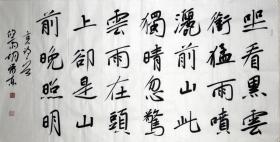 坐看黑雲
銜猛雨噴
灑前山此
獨晴忽驚
雲雨在頭
上卻是山
前晚照明